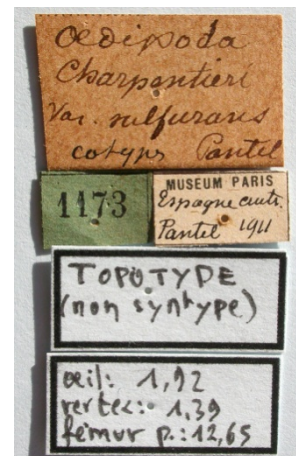 Oedipoda
Charpentieri
Var. sulfurans
cotype Pantel
1173
MUSEUM PARIS
Espagne centr.
Pantel 1911
TOPOTYPE
(non syntype)
œil: 1,92
vertex: 1,39
fémur p.: 12,65